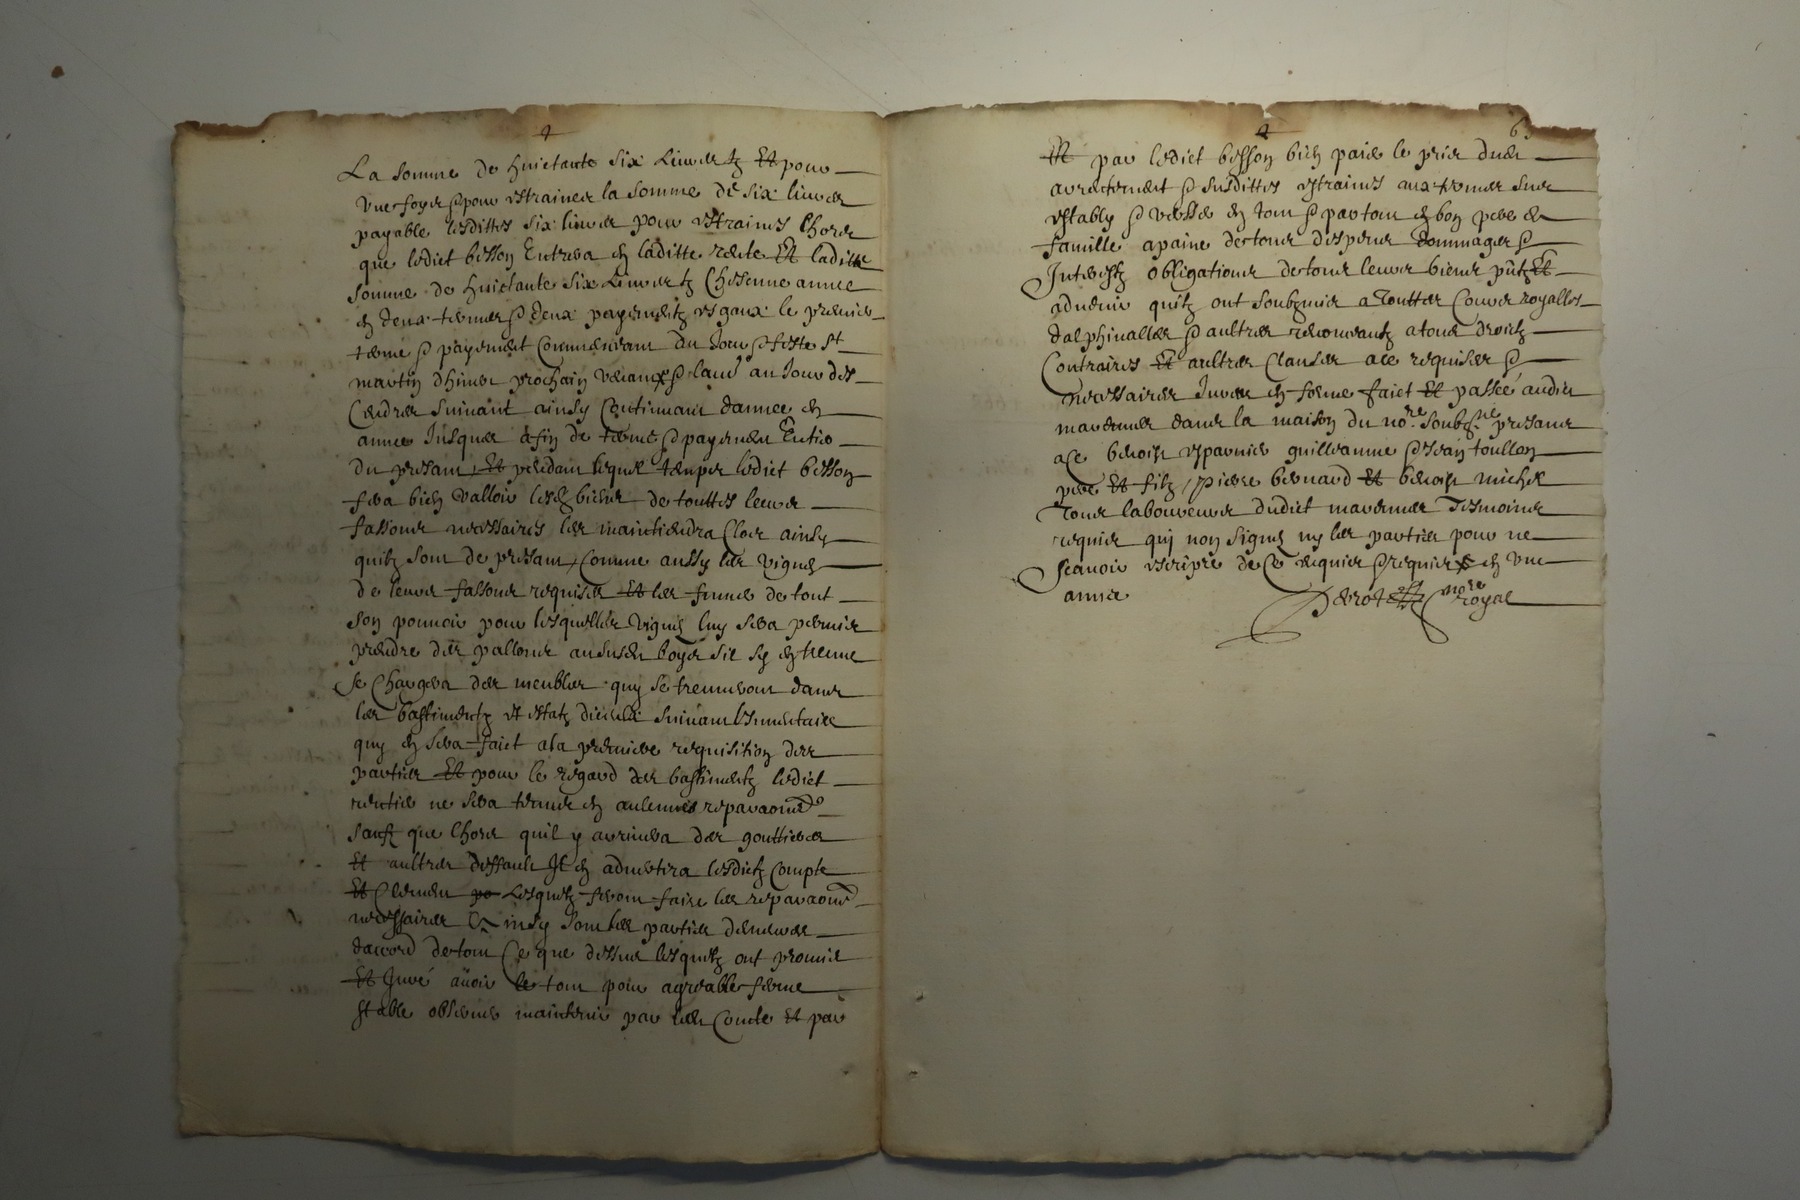 La somme de huictante six livres tz Et pour
Une foys & pour estraines la somme de six livres
payable lesdittes six livres pour estraines lhors
que ledict besson Entrera en laditte rente Et laditte
somme de huictante six livres tz Chescune annee
en deux termes & deux payementz esgaux le premier
terme & payement Commensant du Jour & feste st
martin dhiver prochain venant & laut.e au Jour des
Cendres suivant ainsy Continuant dannee en
annee Jusques a fin de ferme & payement Entier
du presant Et pendant lequel temps ledict besson
fera bien valloir lesd. biens de touttes leurs
fassons necessaires les maintiendra Clos ainsy
quilz sont de presant Comme aussy les vignes
de leurs fassons requises Et les fumer de tout
son pouvoir pour lesquelles vignes luy sera permis
prendre des pallons au susd. boys sil sy en treuve
Se Chargera des meubles quy se treuveront dans
les bastimentz et estatz diceux suivant linventaire
quy en sera faict a la premiere requisition des
parties Et pour le regard des bastimentz ledict
rentier ne sera tenu en aulcunes reparaons
sauf que lhors quil y arrivera des gouttieres
Et aultres deffault Il en advertira lesdictz Compte
Et Clement Lesquelz feront faire les reparaons
necessaires Et Ainsy sont les parties demeures
daccord de tout Ce que dessus lesquelz ont promis
Et Juré avoir le tout pour agreable ferme
stable observer maintenir par lesd. Comte Et par
6
Et par ledict besson bien paier le prix dud.
arrentement & susdittes estraines aux termes sus
establys & verser en tout & par tout en bon pere de
famille a paine de tous despens dommages &
Interestz obligations de tous leurs biens pntz Et
advenir quilz ont soubzmis a Touttes Cours royalles
dalphinalles & aultres renonceantz a tous droictz
Contraires Et aultres Clauses a ce requises &
necessaires Jurees en forme faict Et passé audict
marennes dans la maison du no.re soubz.ne presans
a Ce benoist esparvier guilleaume & Jean toullon
pere Et filz pierre bernard Et benoist michel
Tous laboureurs dudict marennes Tesmoins
requis quj non signes ny les parties pour ne
Scavoir escripre de Ce enquis & requis en une
annee
no.re royal